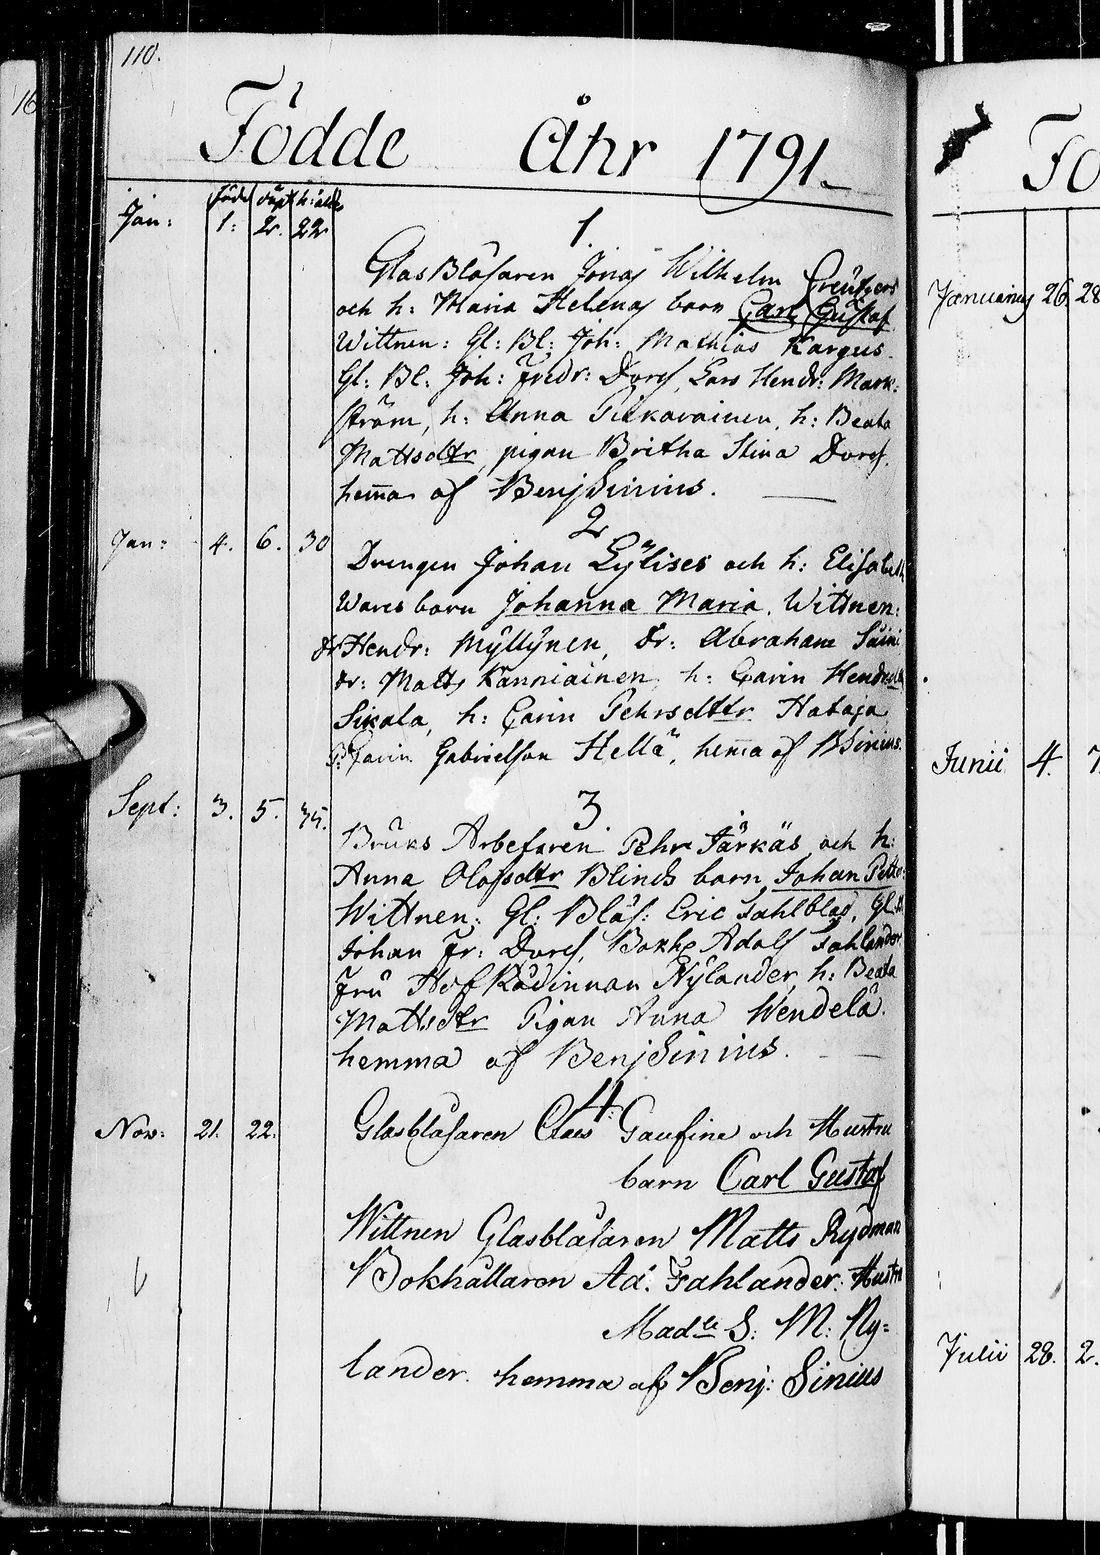 110.
16
Födde Åhr 1791.
född döpt h: åld
Jan: 1. 2. 22
1.
Glas Blåsaren Jonas Wilhelm Creutzers
och h: Maria Helenas barn Carl Gustaf
Wittnen: Gl: Bl: Joh: Mathias Kargus.
Gl: Bl: Joh: Fredr: Dorch, Lars Hendr: Mark-
ström, h: Anna Pitkavainen, h: Beata
Mattsdttr, pigan Britha Stina Dorch.
hema af BenjSinius.
Jan: 4. 6. 30
2
Drengen Johan Eÿlises och h: Elisabeth
Wares barn Johanna Maria. Wittnen:
dr Hendr: Mÿllÿnen, dr: Abraham Suini
dr: Matts Kanniainen, h: Carin Hendrsdttr
Sikala, h: Carin Pehrsdttr Hataja
P: Carin Gabrielsson Hellä, hema af BSinius.
Sept: 3. 5. 35.
3
Bruks Arbetaren Pehr Färkäs och h:
Anna Olofsdtr Blinds barn Johan Petter:
Wittnen: Gl: Blås: Eric Fahlblad, Gl. B
Johan Fr: Dorch, Bokh: Adolf Fahlander
Fru HofRådinnan Nÿlander, h: Beata
Mattsdtr Pigan Anna Wendela.
hemma af BenjSinius.
Nov: 21. 22.
4.
Glasblåsaren Claes Gaufine och Hustru
barn Carl Gustaf
Wittnen Glasblåsaren Matts Rydman
Bokhållaren Ad: Fahlander: Hustru
Madlle S: M: Ny=
lander. hemma af Benj: Sinius
Fö
Januarius 26. 28
Junii 4. 7.
Julii 28. 2.